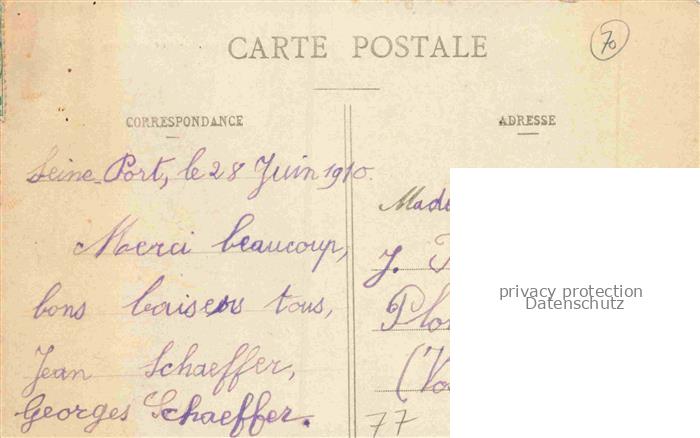 CARTE POSTALE
70
CORRESPONDANCE
ADRESSE
Seine-Port, le 28 Juin 1910.
Merci beaucoup,
bons baisers tous,
Jean Schaeffer,
Georges Schaeffer.
J.
77
privacy protection
Datenschutz